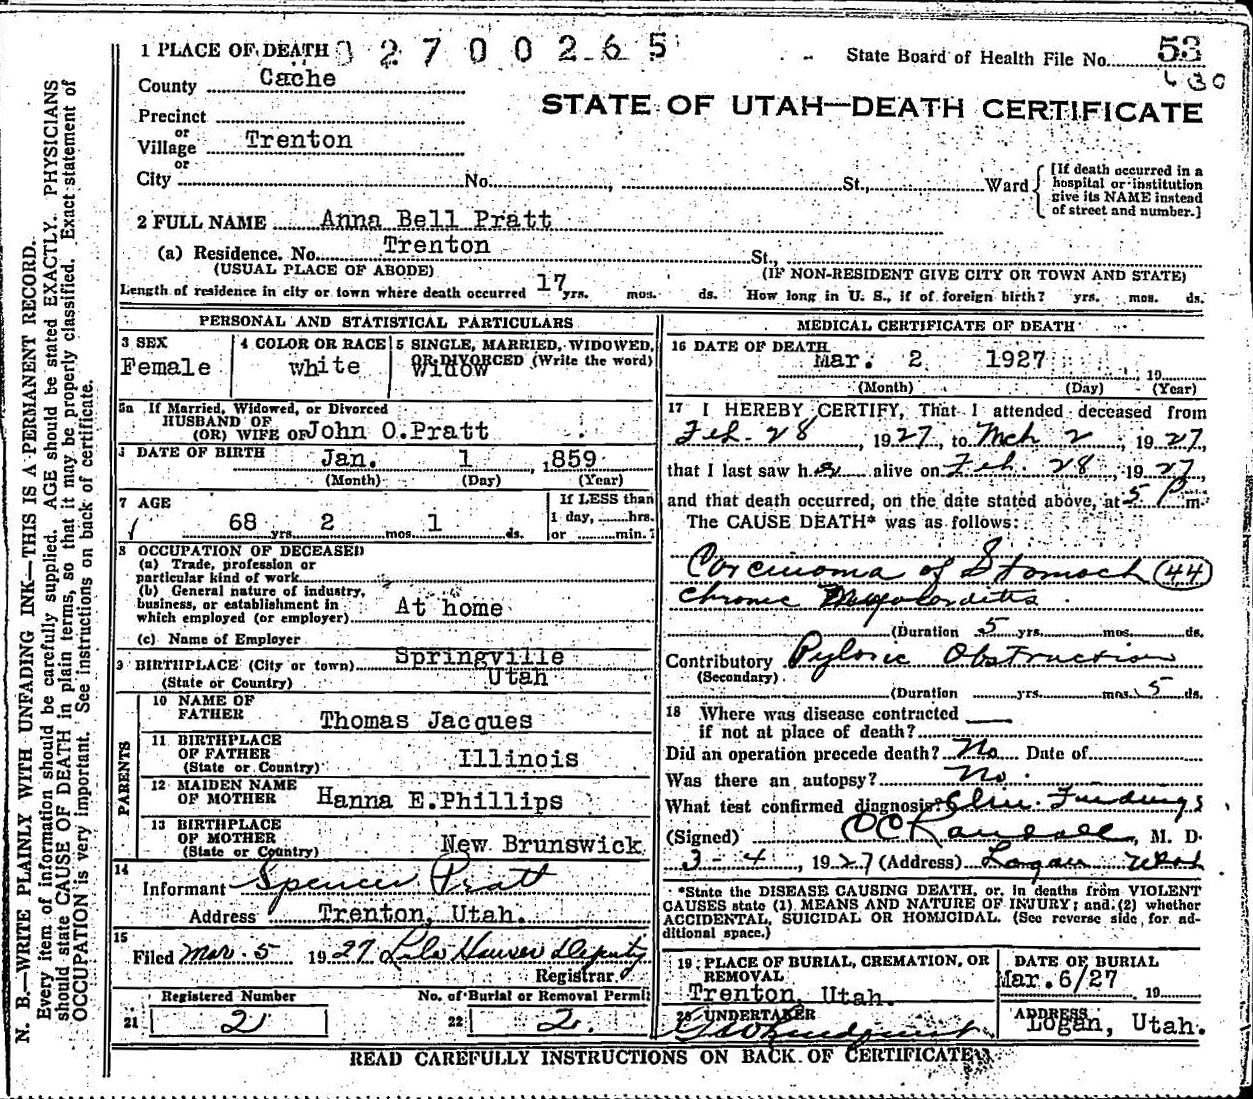 N. B.—WRITE PLAINLY WITH UNFADING INK—THIS IS A PERMANENT RECORD.
Every item of information should be carefully supplied. AGE should be stated EXACTLY. PHYSICIANS
should state CAUSE OF DEATH in plain terms, so that it may be properly classified. Exact statement of
OCCUPATION is very important. See instructions on back of certificate.
1 PLACE OF DEATH 02700265
State Board of Health File No. 53
630
County Cache
STATE OF UTAH—DEATH CERTIFICATE
Precinct
or
Village Trenton
or
City No. , St., Ward
[If death occurred in a
hospital or institution
give its NAME instead
of street and number.]
2 FULL NAME Anna Bell Pratt
(a) Residence. No. Trenton St.,
(USUAL PLACE OF ABODE) (IF NON-RESIDENT GIVE CITY OR TOWN AND STATE)
Length of residence in city or town where death occurred 17 yrs. mos. ds. How long in U. S., if of foreign birth? yrs. mos. ds.
PERSONAL AND STATISTICAL PARTICULARS
3 SEX
Female
4 COLOR OR RACE
white
5 SINGLE, MARRIED, WIDOWED,
OR DIVORCED (Write the word)
Widow
5a If Married, Widowed, or Divorced
HUSBAND OF
(OR) WIFE OF John O. Pratt
DATE OF BIRTH Jan. 1 , 1859
(Month) (Day) (Year)
7 AGE
68 yrs. 2 mos. 1 ds.
If LESS than
1 day, hrs.
or min.?
8 OCCUPATION OF DECEASED
(a) Trade, profession or
particular kind of work
(b) General nature of industry,
business, or establishment in
which employed (or employer) At home
(c) Name of Employer
9 BIRTHPLACE (City or town) Springville
(State or Country) Utah
PARENTS
10 NAME OF
FATHER Thomas Jacques
11 BIRTHPLACE
OF FATHER
(State or Country) Illinois
12 MAIDEN NAME
OF MOTHER Hanna E. Phillips
13 BIRTHPLACE
OF MOTHER
(State or Country) New Brunswick
14
Informant Spencer Pratt
Address Trenton, Utah.
15
Filed Mar. 5 1927 Lila Hauser Deputy
Registrar
Registered Number
21 2
No. of Burial or Removal Permit
22 2.
MEDICAL CERTIFICATE OF DEATH
16 DATE OF DEATH
Mar. 2 1927 , 19
(Month) (Day) (Year)
17 I HEREBY CERTIFY, That I attended deceased from
Feb. 28, 1927, to Mch 2, 1927,
that I last saw h alive on Feb. 28, 1927
and that death occurred, on the date stated above, at 5 P m.
The CAUSE DEATH* was as follows:
Carcinoma of Stomach (44)
Chronic Myocarditis.
(Duration 5 yrs. mos. ds.
Contributory Pyloric Obstruction
(Secondary)
(Duration yrs. mos. 5 ds.
18 Where was disease contracted
if not at place of death?
Did an operation precede death? No Date of
Was there an autopsy? No.
What test confirmed diagnosis? Clin. Findings
(Signed) O C Randall, M. D.
3-4, 1927 (Address) Logan Utah
*State the DISEASE CAUSING DEATH, or, in deaths from VIOLENT
CAUSES state (1) MEANS AND NATURE OF INJURY; and (2) whether
ACCIDENTAL, SUICIDAL OR HOMICIDAL. (See reverse side for ad-
ditional space.)
19 PLACE OF BURIAL, CREMATION, OR
REMOVAL
Trenton, Utah.
DATE OF BURIAL
Mar. 6/27 19
20 UNDERTAKER
ADDRESS
Logan, Utah.
READ CAREFULLY INSTRUCTIONS ON BACK OF CERTIFICATE